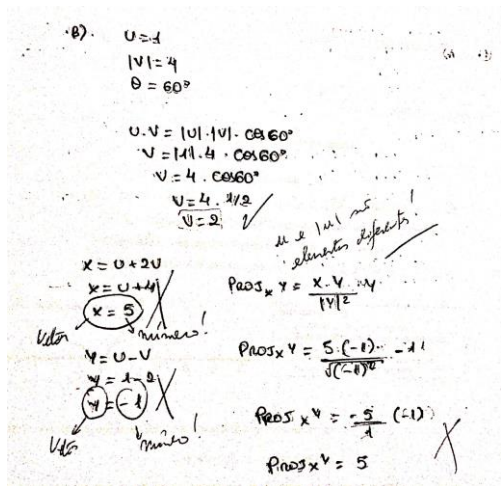 B).
U=1
|V|=4
θ = 60°
U.V = |U|.|V|. cos60°
V = |1|.4 . cos60°
V = 4 . cos60°
V = 4 . 1/2
V = 2
u e |u| são
elementos diferentes!
X = U+2V
X = U+4
X = 5
Vetor
número!
Y = U-V
Y = 1-2
Y = -1
Vetor
número!
PROJₓ Y = X.Y / |Y|² . Y
PROJₓ Y = 5.(-1) / √(-1)² . -1
PROJₓ Y = -5/1 (-1)
PROJₓ Y = 5